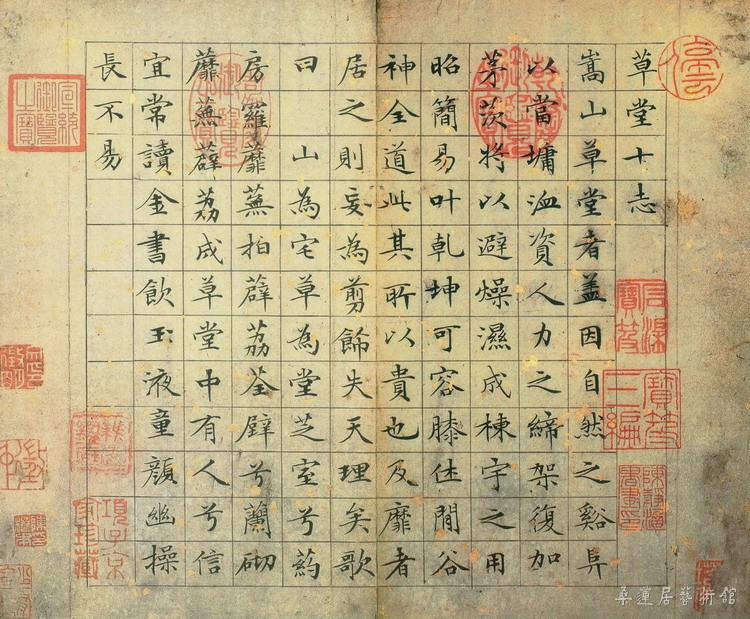 草堂十志
嵩山草堂者盖因自然之谿阜
以當墉洫資人力之締架復加
茅茨将以避燥濕成棟宇之用
昭簡易叶乾坤可容膝休閒谷
神全道此其所以貴也及靡者
居之則妄為剪餙失天理矣歌
曰 山為宅草為堂芝室兮葯
房羅蘼蕪拍薜荔荃壁兮蘭砌
蘼蕪薜荔成草堂中有人兮信
宜常讀金書飲玉液童顏幽操
長不易
石渠寶笈
寶笈三編
宣統御覽之寶
項子京家珍藏
桑蓮居藝術館